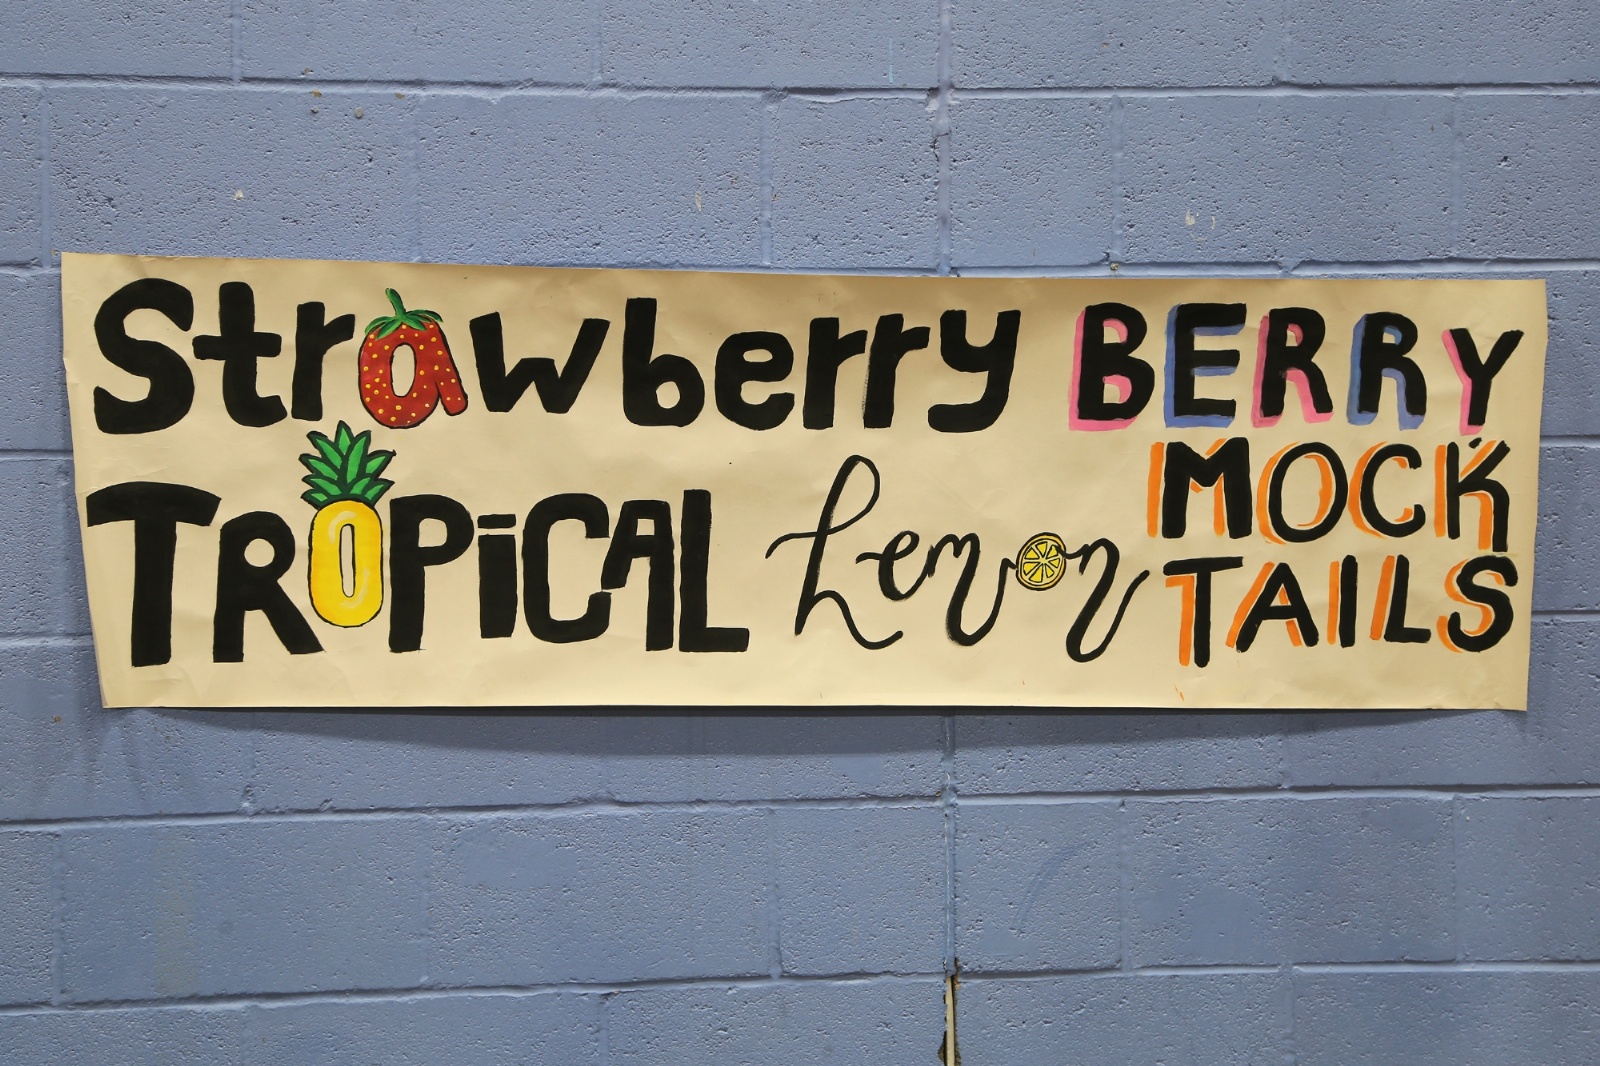 Strawberry BERRY
TROPiCAL Lemon MOCK
TAILS